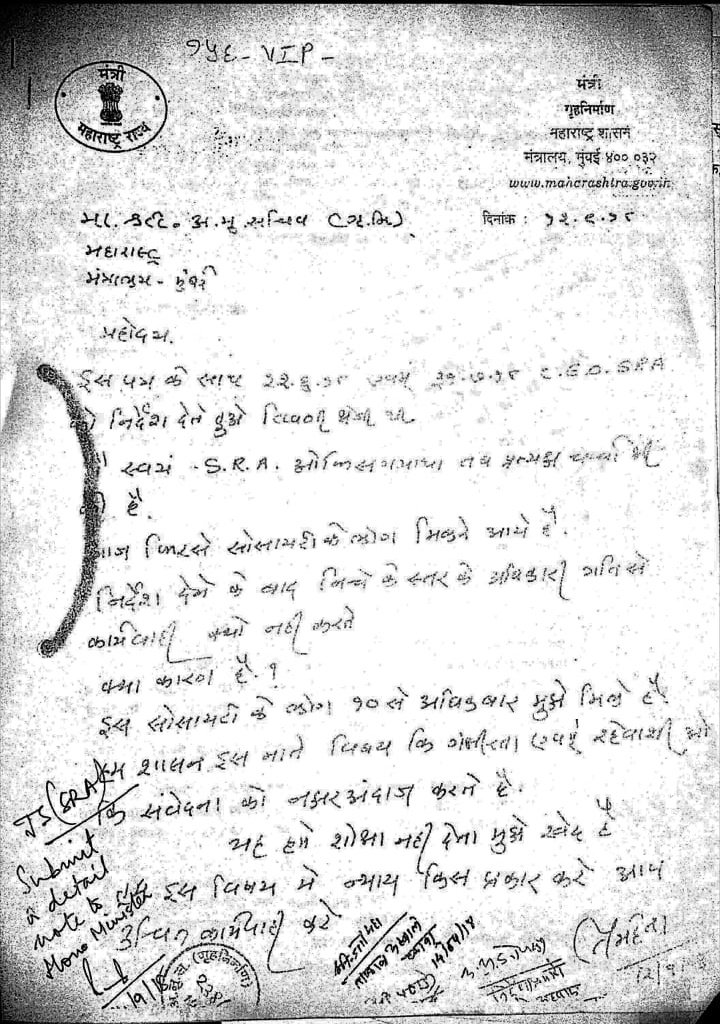 ७५६ - VIP -
मंत्री
महाराष्ट्र राज्य
मंत्री
गृहनिर्माण
महाराष्ट्र शासन
मंत्रालय, मुंबई ४०० ०३२
www.maharashtra.gov.in
मा. अ. मु. सचिव (गृ. नि.)
दिनांक : १२.९.१८
महाराष्ट्र
मंत्रालय - मुंबई
महोदय.
इस पत्र के साथ २२.६.१८ एवम् ३१.७.१८ C.E.O. SRA
को निर्देश देते हुओ
स्वयं S.R.A. प्रत्यक्ष चर्चा भी
की है.
आज फिरसे सोसायटी के लोग मिलने आये है.
निर्देश देने के बाद निचे के स्तर के अधिकारी गति से
कार्यवाही क्यो नही करते
क्या कारण है. ?
इस सोसायटी के लोग १० से अधिकबार मुझे मिले है.
हम शासन इस नाते विषय कि गंभीरता एवं रहेवाशी ओ
कि संवेदना को नजरअंदाज करते है.
यह हमे शोभा नही देना मुझे खेद है
इस विषय मे न्याय किस प्रकार करे आप
उचित कार्यवाही करे
JS (SRA)
Submit
a detail
note to
Hon Minister
(गृहनिर्माण)